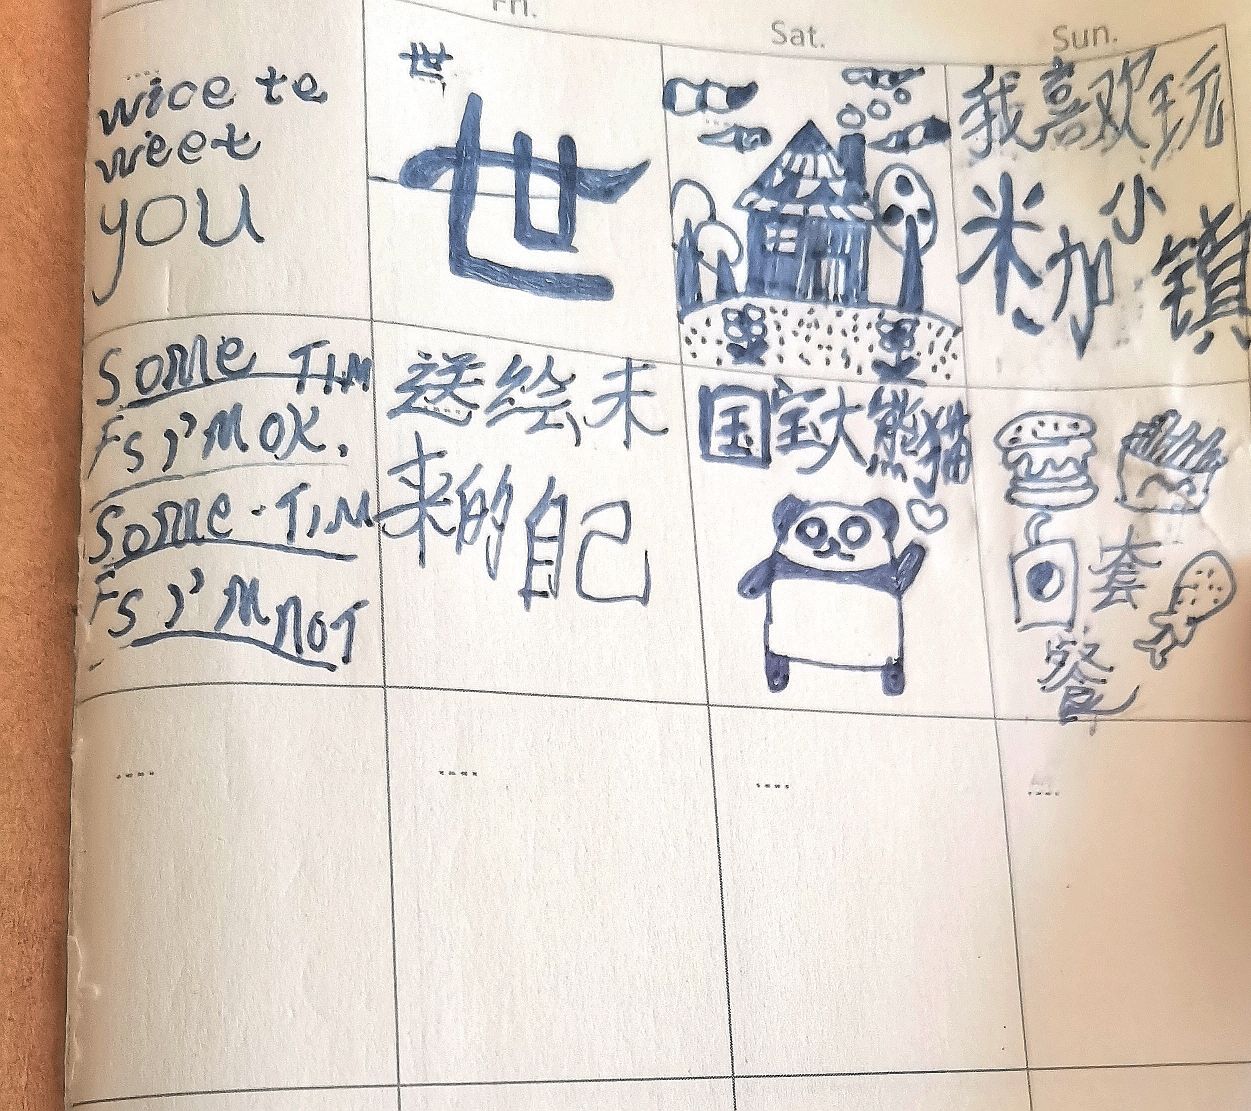 Fri.
Sat.
Sun.
wice te
weet
you
世
世
我喜欢玩
米加小镇
Some TIM
Es I'M OK.
Some·TIM
Es I'M NOT
送绘未
来的自己
国宝大熊猫
套
餐